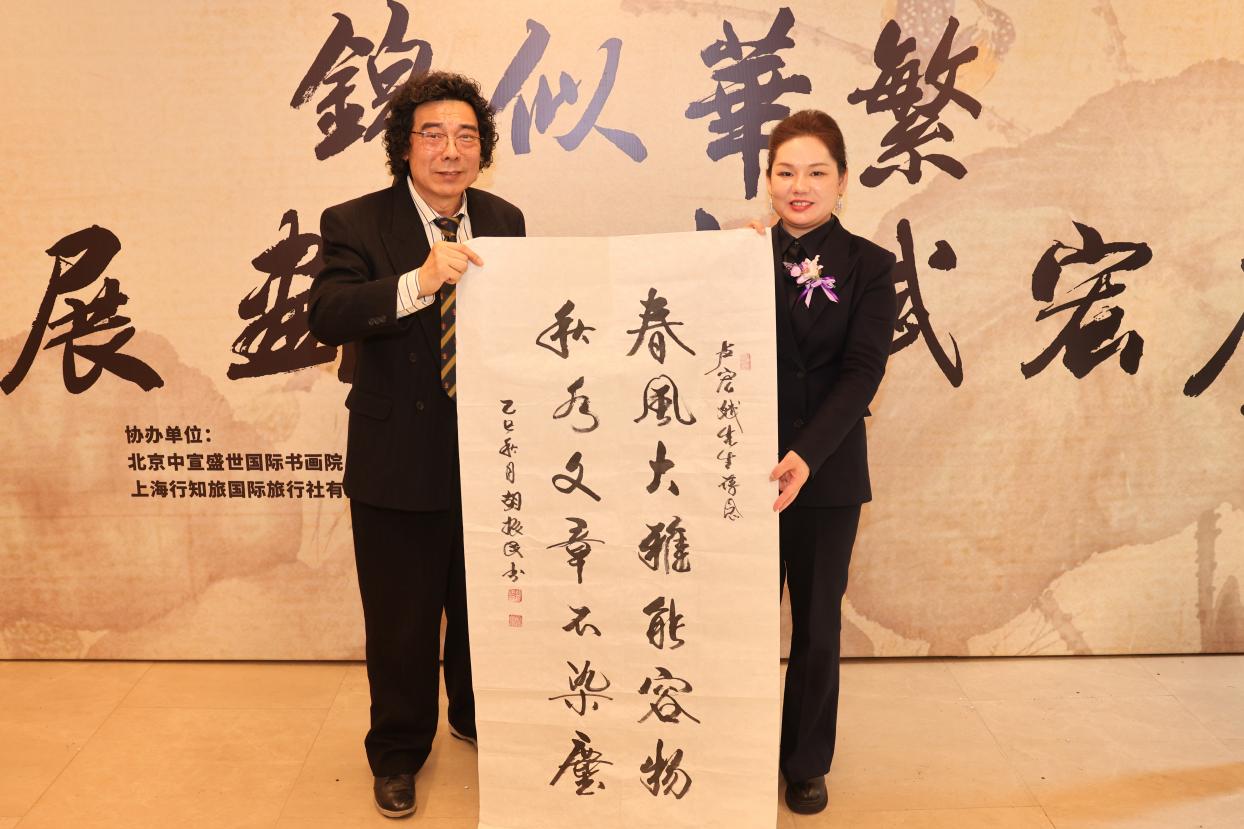 繁華似錦
宏 畫展
协办单位：
北京中宣盛世国际书画院
上海行知旅国际旅行社有
卢宏 先生 念
春風大雅能容物
秋水文章不染塵
乙巳秋月胡振民书